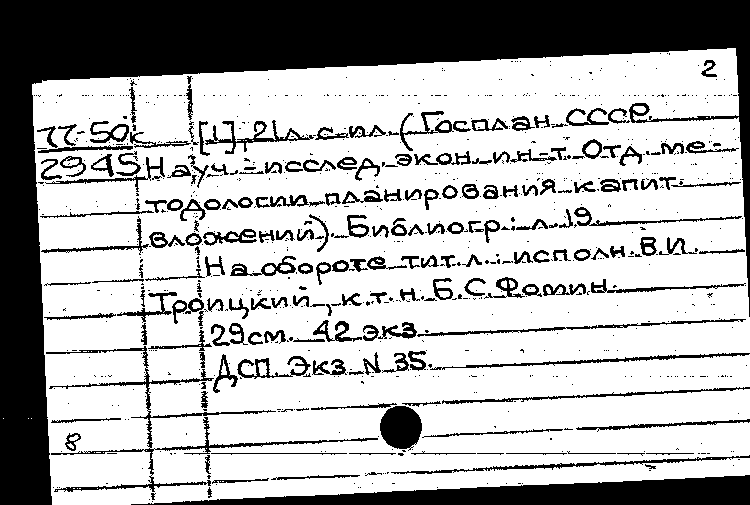 2
77-50к [1], 21л. с ил. (Госплан СССР.
2945 Науч.-исслед. экон. ин-т. Отд. ме-
тодологии планирования капит.
вложений). Библиогр.: л. 19.
На обороте тит. л.: исполн. В.И.
Троицкий, к.т.н. Б.С. Фомин.
29см. 42 экз.
ДСП. Экз N 35.
8